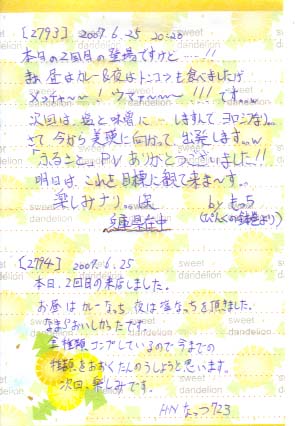 [2793] 2009.6.25 20:20
本日の2回目の登場ですけど……!!
昼はカレー&夜はトンコツも食べましたが
メッチャ〜〜! ウマァ〜〜〜 !!! です。
次回は、塩と味噌に しますんで、ヨロシクなり。
さて今から 美瑛に向かって 出発します。
「ふるさと」P.V. ありがとうございました!!
明日は、これを目標に観て来ま〜す。
楽しみナリ。
by もっち
兵庫県在中
[2794] 2009.6.25
本日、2回目の来店しました。
お昼はカレーなっち 夜は塩なっちを頂きました。
おいしかったです
全種類コンプしているので今までの
種類をおおくたんのうしようと思います。
次回、楽しみです。
HN なっつ723
sweet dandelion